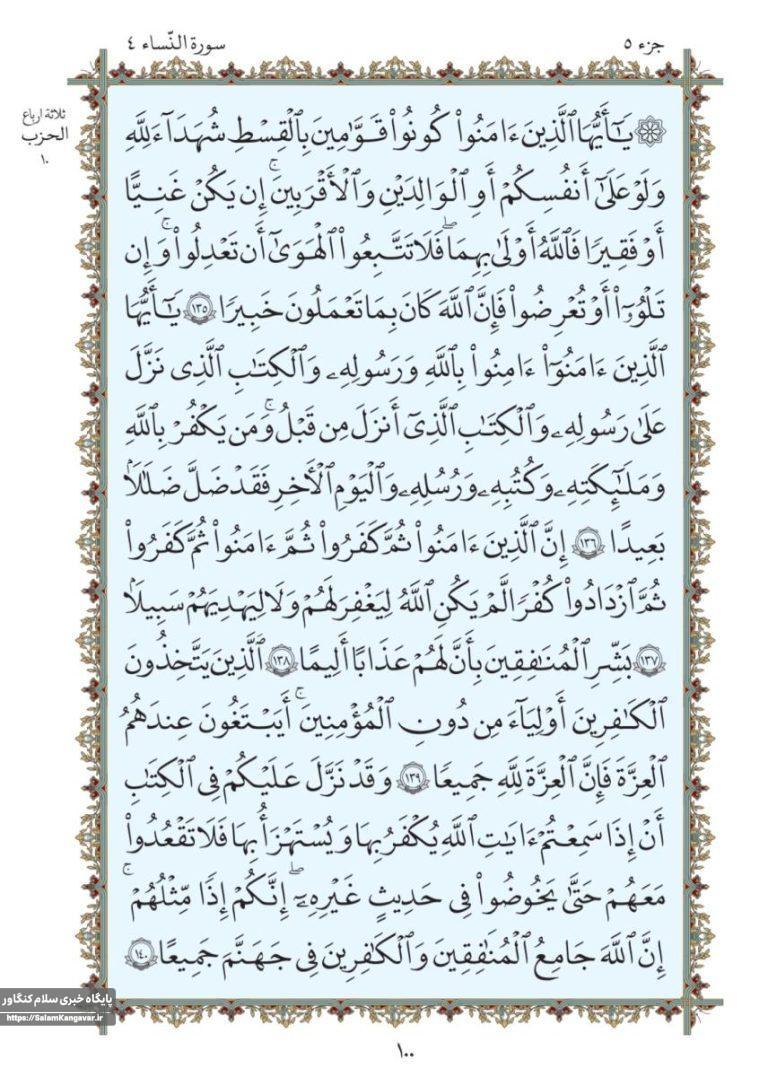 جزء ٥
سورة النّساء ٤
ثلاثة ارباع
الحزب
١٠
۞ يَـٰٓأَيُّهَا ٱلَّذِينَ ءَامَنُوا۟ كُونُوا۟ قَوَّٰمِينَ بِٱلْقِسْطِ شُهَدَآءَ لِلَّهِ
وَلَوْ عَلَىٰٓ أَنفُسِكُمْ أَوِ ٱلْوَٰلِدَيْنِ وَٱلْأَقْرَبِينَ ۚ إِن يَكُنْ غَنِيًّا
أَوْ فَقِيرًا فَٱللَّهُ أَوْلَىٰ بِهِمَا ۖ فَلَا تَتَّبِعُوا۟ ٱلْهَوَىٰٓ أَن تَعْدِلُوا۟ ۚ وَإِن
تَلْوُۥٓا۟ أَوْ تُعْرِضُوا۟ فَإِنَّ ٱللَّهَ كَانَ بِمَا تَعْمَلُونَ خَبِيرًا ١٣٥ يَـٰٓأَيُّهَا
ٱلَّذِينَ ءَامَنُوٓا۟ ءَامِنُوا۟ بِٱللَّهِ وَرَسُولِهِۦ وَٱلْكِتَـٰبِ ٱلَّذِى نَزَّلَ
عَلَىٰ رَسُولِهِۦ وَٱلْكِتَـٰبِ ٱلَّذِىٓ أَنزَلَ مِن قَبْلُ ۚ وَمَن يَكْفُرْ بِٱللَّهِ
وَمَلَـٰٓئِكَتِهِۦ وَكُتُبِهِۦ وَرُسُلِهِۦ وَٱلْيَوْمِ ٱلْأَخِرِ فَقَدْ ضَلَّ ضَلَـٰلًۢا
بَعِيدًا ١٣٦ إِنَّ ٱلَّذِينَ ءَامَنُوا۟ ثُمَّ كَفَرُوا۟ ثُمَّ ءَامَنُوا۟ ثُمَّ كَفَرُوا۟
ثُمَّ ٱزْدَادُوا۟ كُفْرًا لَّمْ يَكُنِ ٱللَّهُ لِيَغْفِرَ لَهُمْ وَلَا لِيَهْدِيَهُمْ سَبِيلًۢا
١٣٧ بَشِّرِ ٱلْمُنَـٰفِقِينَ بِأَنَّ لَهُمْ عَذَابًا أَلِيمًا ١٣٨ ٱلَّذِينَ يَتَّخِذُونَ
ٱلْكَـٰفِرِينَ أَوْلِيَآءَ مِن دُونِ ٱلْمُؤْمِنِينَ ۚ أَيَبْتَغُونَ عِندَهُمُ
ٱلْعِزَّةَ فَإِنَّ ٱلْعِزَّةَ لِلَّهِ جَمِيعًا ١٣٩ وَقَدْ نَزَّلَ عَلَيْكُمْ فِى ٱلْكِتَـٰبِ
أَنْ إِذَا سَمِعْتُمْ ءَايَـٰتِ ٱللَّهِ يُكْفَرُ بِهَا وَيُسْتَهْزَأُ بِهَا فَلَا تَقْعُدُوا۟
مَعَهُمْ حَتَّىٰ يَخُوضُوا۟ فِى حَدِيثٍ غَيْرِهِۦٓ ۖ إِنَّكُمْ إِذًا مِّثْلُهُمْ ۗ
إِنَّ ٱللَّهَ جَامِعُ ٱلْمُنَـٰفِقِينَ وَٱلْكَـٰفِرِينَ فِى جَهَنَّمَ جَمِيعًا ١٤٠
پایگاه خبری سلام کنگاور
https://SalamKangavar.ir
١٠٠